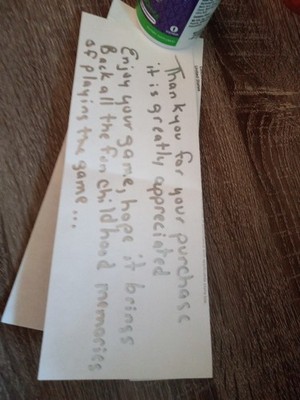 Thank you for your purchase
it is greatly appreciated
Enjoy your game, hope it brings
Back all the fun childhood memories
of playing the game...